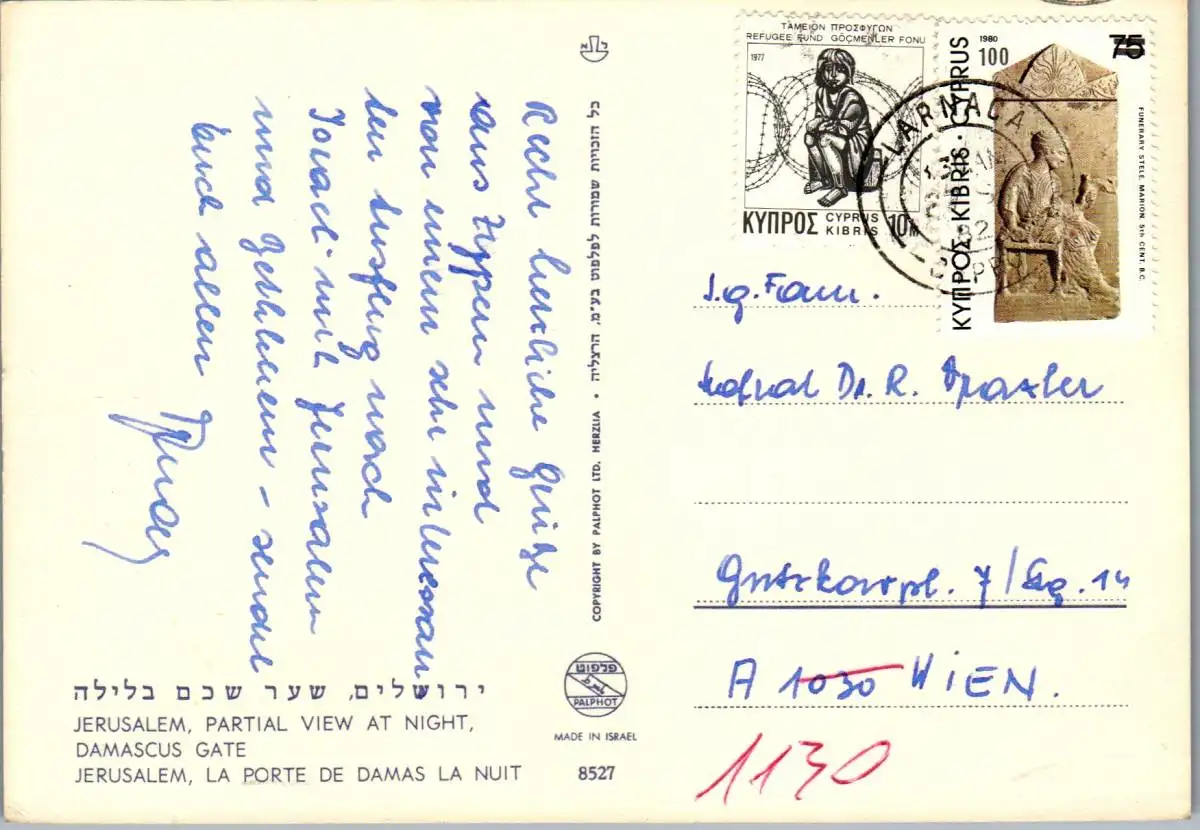 Recht herzliche Grüße
aus Zypern und
von einem sehr interessan
ten Ausflug nach
Israel mit Jerusalem
und Bethlehem – sendet
Euch allen
ירושלים, שער שכם בלילה
JERUSALEM, PARTIAL VIEW AT NIGHT,
DAMASCUS GATE
JERUSALEM, LA PORTE DE DAMAS LA NUIT
כל הזכויות שמורות לפלפוט בע"מ, הרצליה • COPYRIGHT BY PALPHOT LTD. HERZLIA
פלפוט
PALPHOT
MADE IN ISRAEL
8527
ΤΑΜΕΙΟΝ ΠΡΟΣΦΥΓΩΝ
REFUGEE FUND GÖÇMENLER FONU
1977
ΚΥΠΡΟΣ CYPRUS KIBRIS 10M
1980
100
75
ΚΥΠΡΟΣ · KIBRIS · CYPRUS
FUNERARY STELE, MARION, 5th CENT. B.C.
LARNACA
S.g. Fam.
Hofrat Dr. R.
7/Stg. 14
A 1030 WIEN.
1130